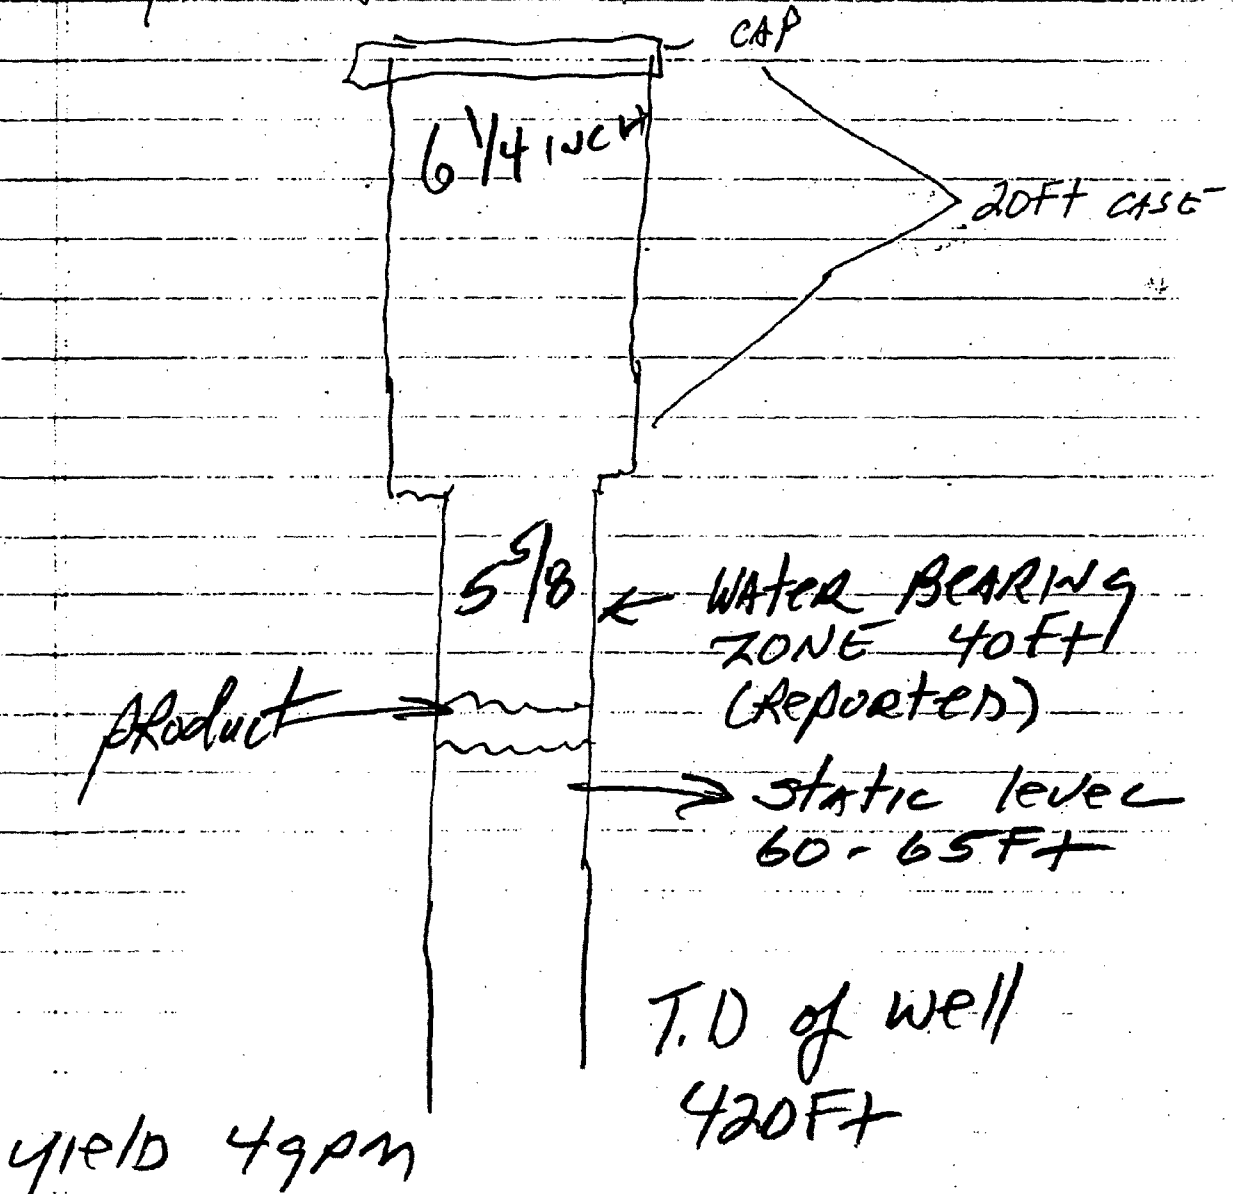 CAP
6 1/4 INCH
20Ft CASE
5 5/8
WAteR BeARING
ZONE 40Ft
(RepoRteD)
pRoduct
stAtic level
60 - 65 Ft
T.D of well
420Ft
yielD 4gpm